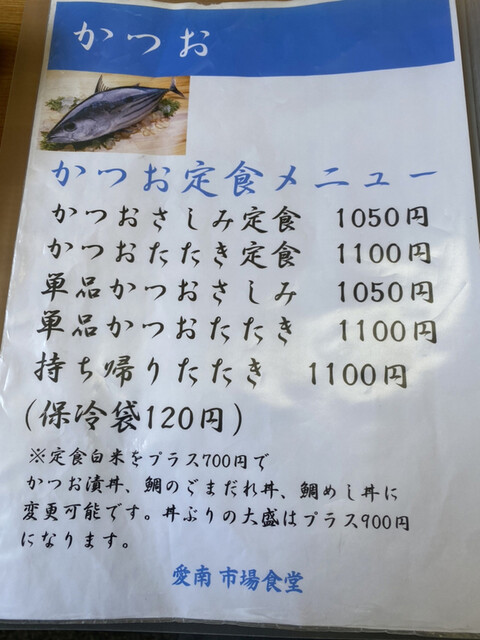 かつお
かつお定食メニュー
かつおさしみ定食 1050円
かつおたたき定食 1100円
単品かつおさしみ 1050円
単品かつおたたき 1100円
持ち帰りたたき 1100円
(保冷袋120円)
※定食白米をプラス700円で
かつお漬丼、鯛のごまだれ丼、鯛めし丼に
変更可能です。丼ぶりの大盛はプラス900円
になります。
愛南市場食堂